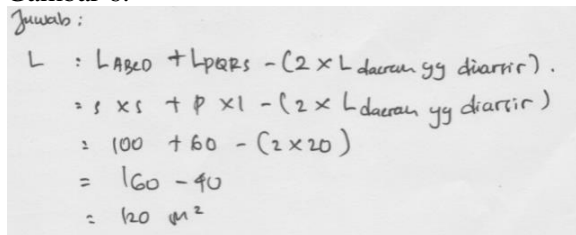 Juwab :
L : LABCD + LPQRS - (2 × L daerah yg diarsir).
= s × s + p × l - (2 × L daerah yg diarsir)
= 100 + 60 - (2 × 20)
= 160 - 40
= 120 m²